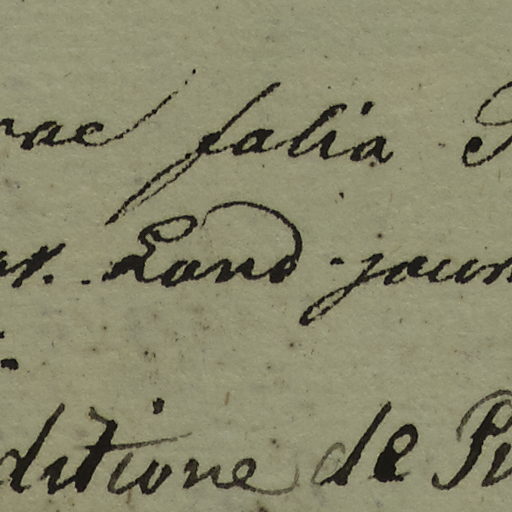 rae folia
ar. Land-jaun
ditione de Pu